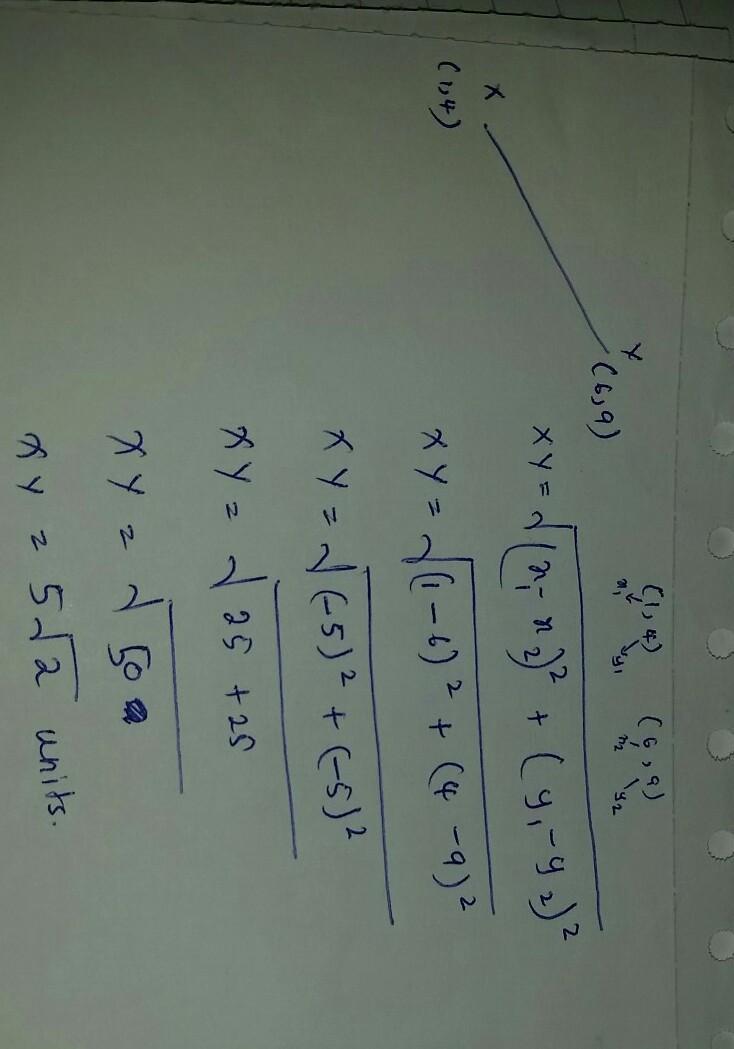 X
(1,4)
Y
(6,9)
(1,4) (6,9)
x₁ y₁ x₂ y₂
XY = √(x₁ - x₂)² + (y₁ - y₂)²
XY = √(1 - 6)² + (4 - 9)²
XY = √(-5)² + (-5)²
XY = √25 + 25
XY = √50
XY = 5√2 units.